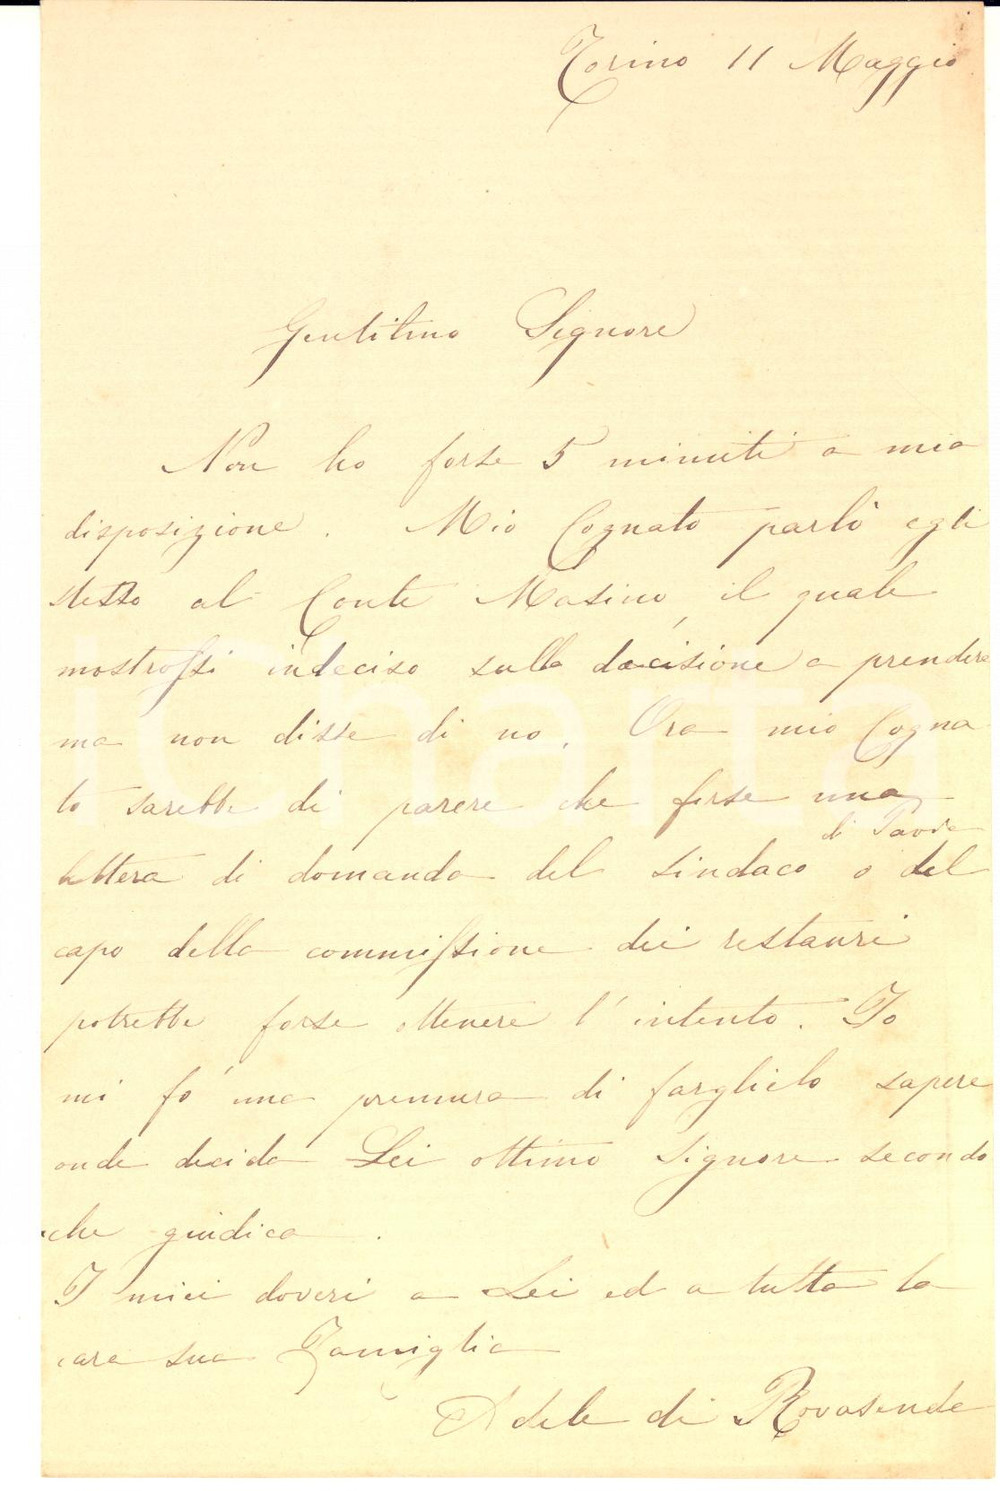 Torino 11 Maggio
Gentilmo Signore
Non ho forse 5 minuti a mia
disposizione. Mio Cognato parlò egli
stesso al Conte Masino, il quale
mostrossi indeciso sulla decisione a prendere
ma non disse di no. Ora mio Cogna
to sarebbe di parere che forse una
di Pavia
lettera di domanda del sindaco o del
capo della commissione dei restauri
potrebbe forse ottenere l'intento. Io
mi fo' una premura di farglielo sapere
onde decida Lei ottimo Signore secondo
che giudica.
I miei doveri a Lei ed a tutta la
cara sua Famiglia
Adele di Rovasenda